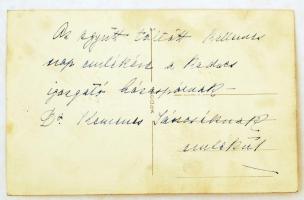 Az együtt töltött kellemes
nap emlékére a kedves
igazgató házaspárnak –
Dr. Kemenes Jánoséknak
emlékül